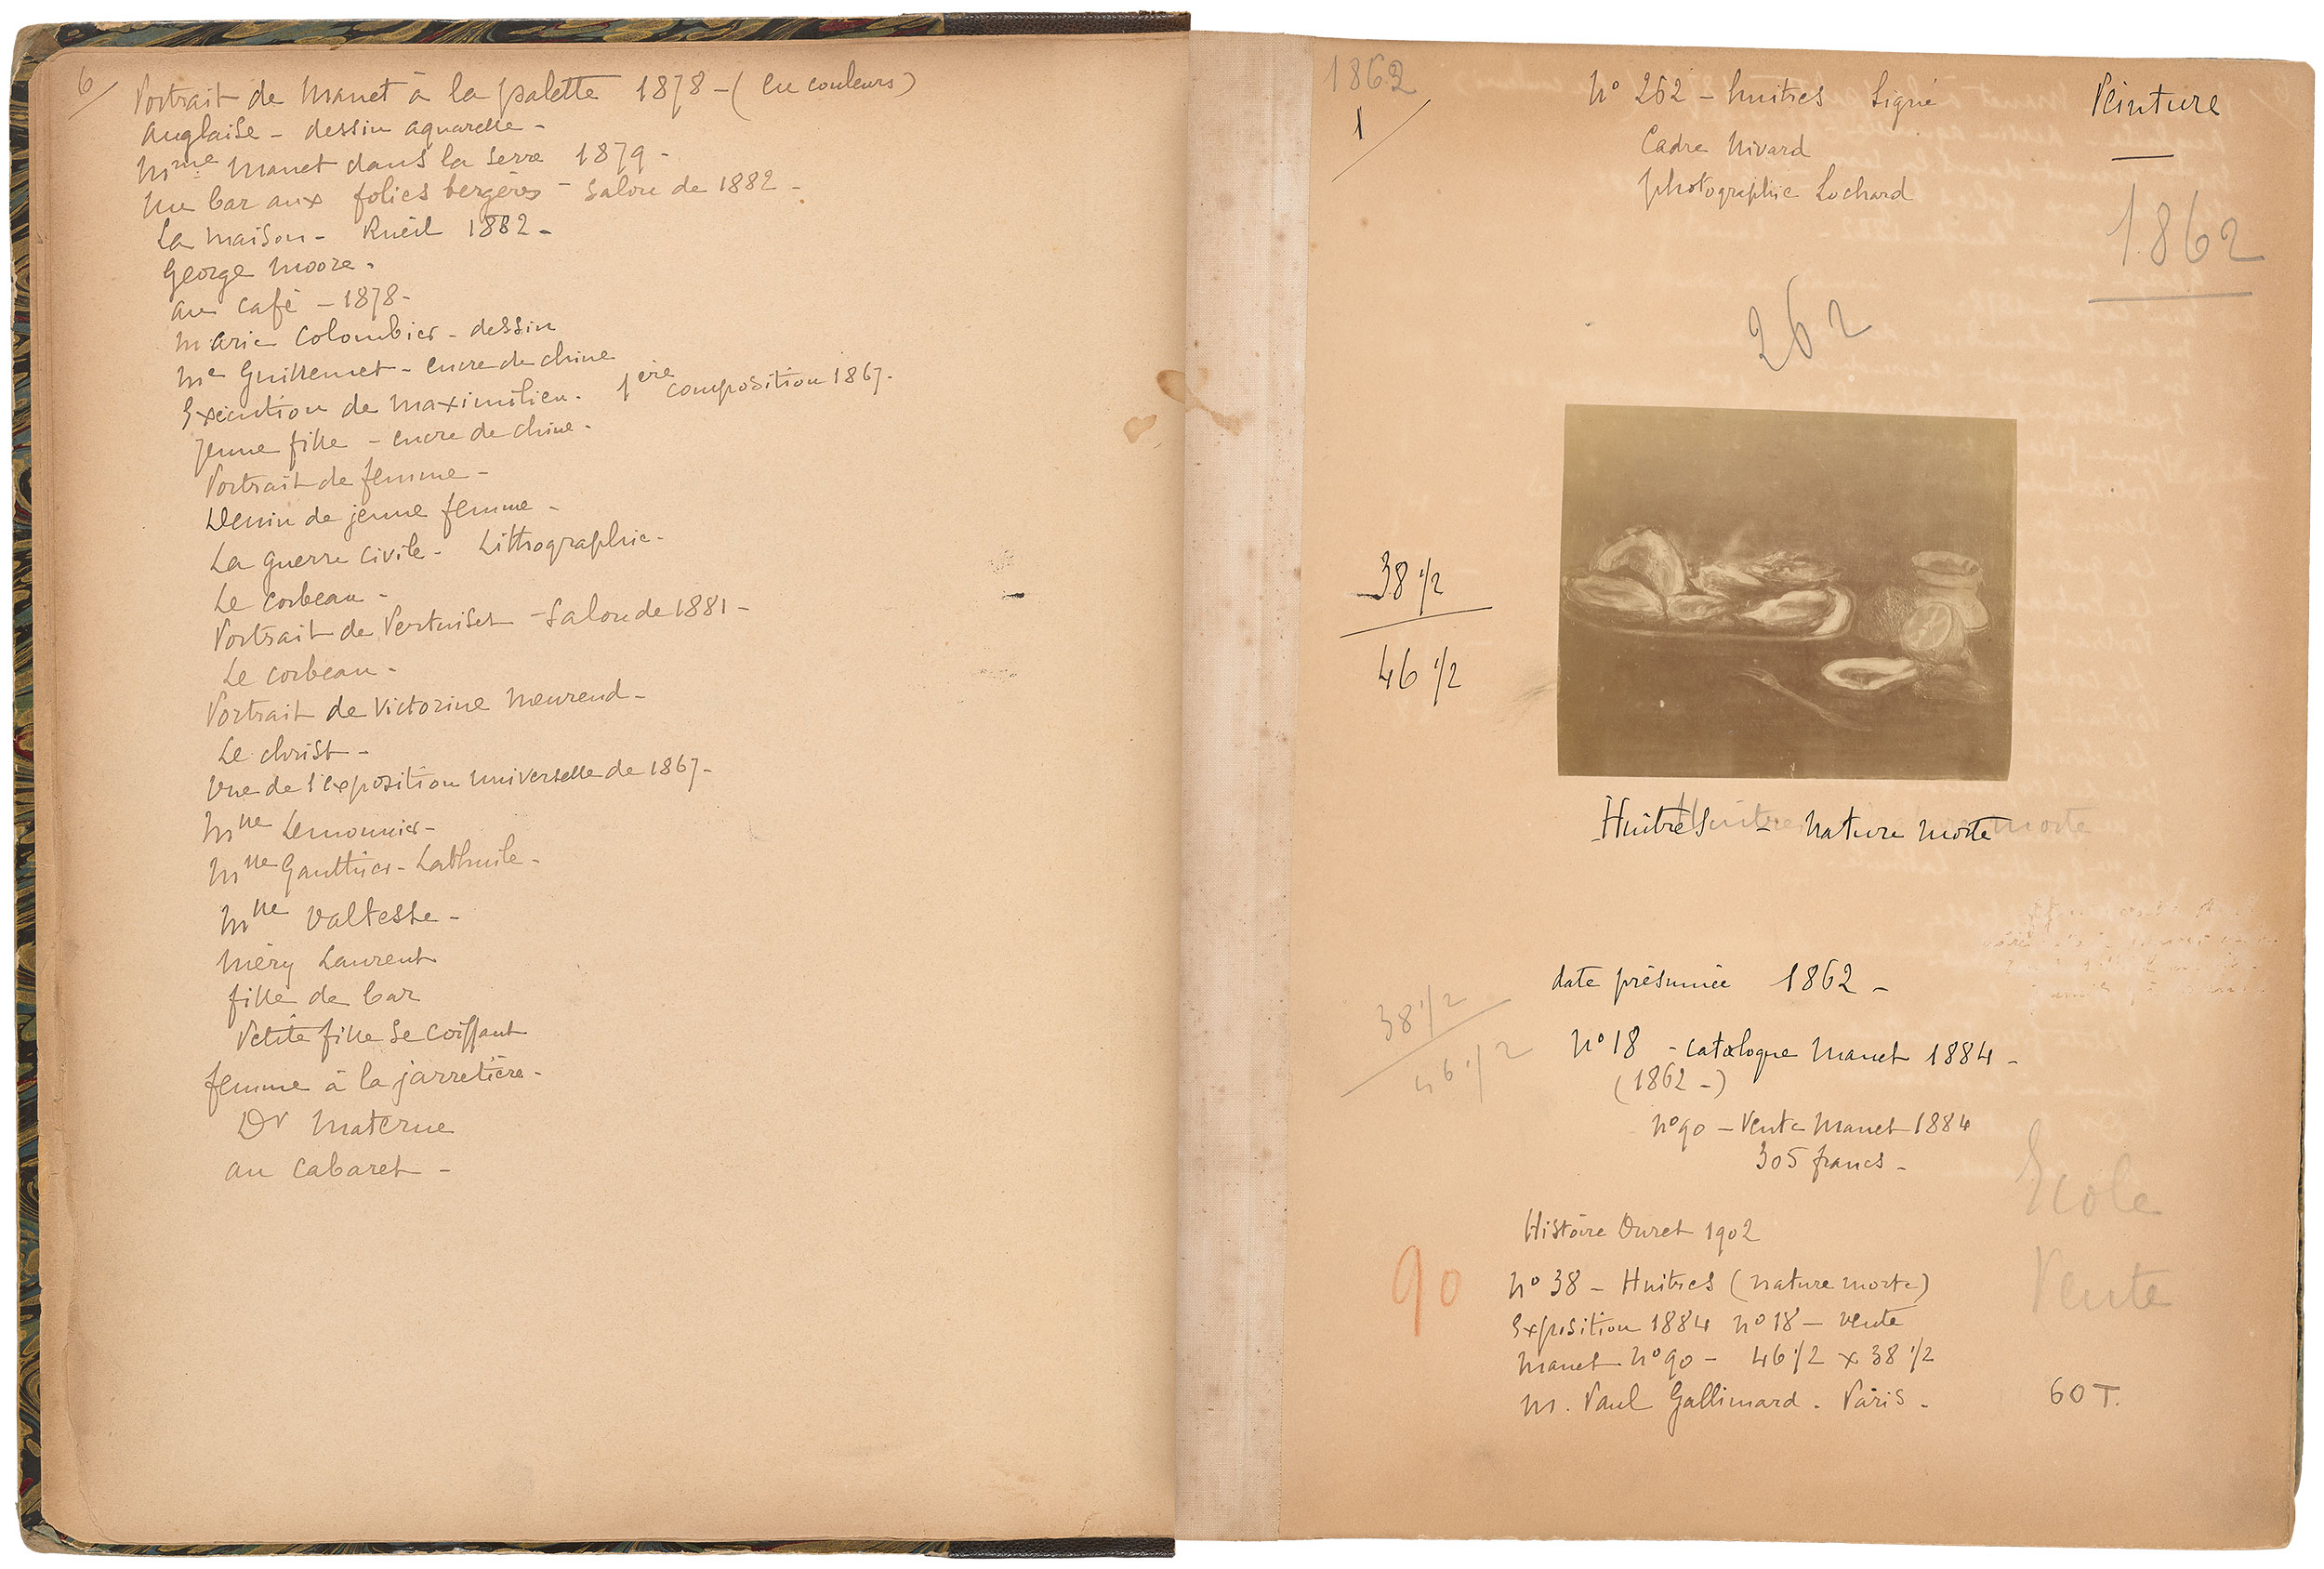 6/
Portrait de Manet à la palette 1878 - (en couleurs)
Anglaise - dessin aquarelle -
Mme Manet dans la serre 1879 -
Un bar aux folies bergères - Salon de 1882 -
La maison - Rueil 1882 -
George Moore -
au café - 1878 -
Marie Colombier - dessin
Me Guillemet - encre de chine
Exécution de Maximilien. 1ère composition 1867 -
Jeune fille - encre de chine -
Portrait de femme -
Dessin de jeune femme -
La guerre civile - Lithographie -
Le corbeau -
Portrait de Pertuiset - Salon de 1881 -
Le corbeau -
Portrait de Victorine Meurend -
Le christ -
Vue de l'exposition universelle de 1867 -
Mlle Lemonnier -
Mlle Gauthier-Lathuile -
Mlle Valtesse -
Méry Laurent
fille de bar
Petite fille se coiffant
femme à la jarretière -
Dr Materne
au cabaret -
1862
1
No 262 - huitres Signé
Peinture
Cadre Nivard
photographie Lochard
1862
262
38 1/2
46 1/2
Huitres - nature morte
date présumée 1862 -
38 1/2
46 1/2
No 18 - catalogue Manet 1884 -
(1862 -)
No 90 - Vente Manet 1884
305 francs -
Ecole
Vente
Histoire Duret 1902
90
No 38 - Huitres (nature morte)
Exposition 1884 No 18 - vente
Manet No 90 - 46 1/2 x 38 1/2
M. Paul Gallimard. Paris -
60 T.